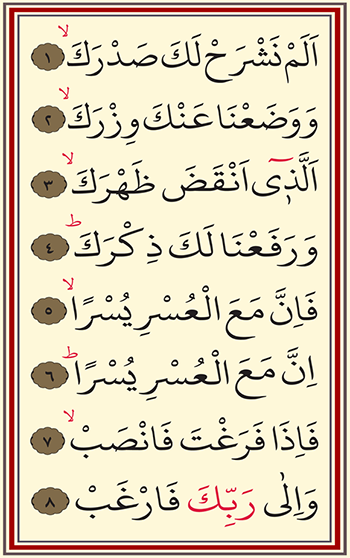 اَلَمْ نَشْرَحْ لَكَ صَدْرَكَۙ ١
وَوَضَعْنَا عَنْكَ وِزْرَكَۙ ٢
اَلَّذ۪ٓي اَنْقَضَ ظَهْرَكَۙ ٣
وَرَفَعْنَا لَكَ ذِكْرَكَۜ ٤
فَاِنَّ مَعَ الْعُسْرِ يُسْرًاۙ ٥
اِنَّ مَعَ الْعُسْرِ يُسْرًاۜ ٦
فَاِذَا فَرَغْتَ فَانْصَبْۙ ٧
وَاِلٰى رَبِّكَ فَارْغَبْ ٨